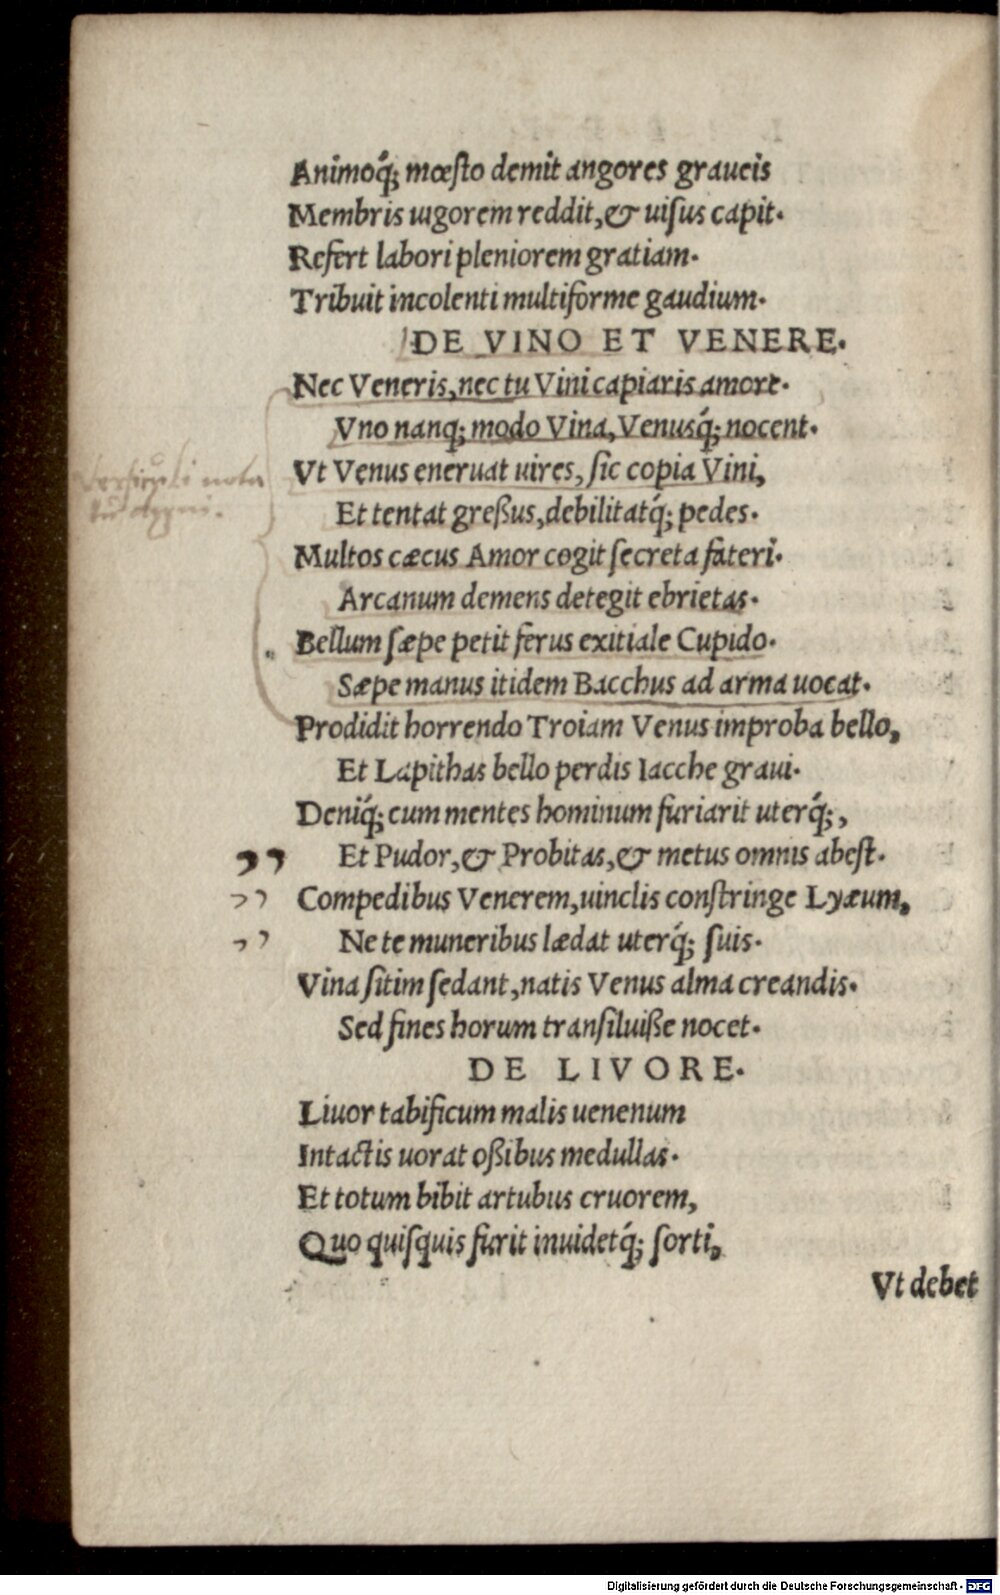 Animoq́; mœſto demit angores graueis
Membris uigorem reddit, & uiſus capit.
Refert labori pleniorem gratiam.
Tribuit incolenti multiforme gaudium.
DE VINO ET VENERE.
Nec Veneris, nec tu Vini capiaris amore.
Vno nanq; modo Vina, Venusq́; nocent.
Vt Venus eneruat uires, ſic copia Vini,
Et tentat greßus, debilitatq́; pedes.
Verſiculi nota
tu digni.
Multos cæcus Amor cogit ſecreta fateri.
Arcanum demens detegit ebrietas.
Bellum ſæpe petit ferus exitiale Cupido.
Sæpe manus itidem Bacchus ad arma uocat.
Prodidit horrendo Troiam Venus improba bello,
Et Lapithas bello perdis Iacche graui.
Deniq́; cum mentes hominum furiarit uterq́;,
Et Pudor, & Probitas, & metus omnis abeſt.
Compedibus Venerem, uinclis conſtringe Lyæum,
Ne te muneribus lædat uterq́; ſuis.
Vina ſitim ſedant, natis Venus alma creandis.
Sed fines horum tranſiluiße nocet.
DE LIVORE.
Liuor tabificum malis uenenum
Intactis uorat oßibus medullas.
Et totum bibit artubus cruorem,
Quo quiſquis furit inuidetq́; ſorti,
Vt debet
Digitalisierung gefördert durch die Deutsche Forschungsgemeinschaft - DFG